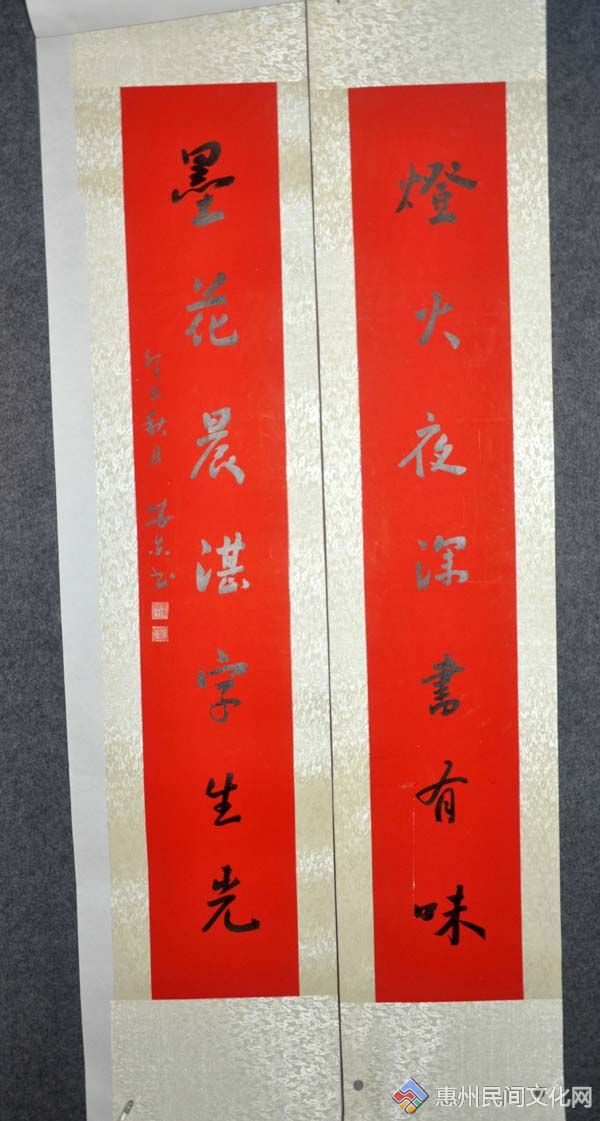 燈火夜深書有味
墨花晨湛字生光
秋月
書
惠州民间文化网